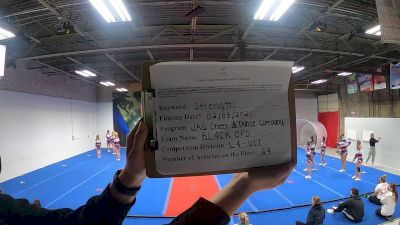 Keyword: Strength
Filming Date: 02/03/2021
Program: JAG Cheer & Dance Company
Team Name: BLACK OPS
Competition Division: L4-U17
Number of Athletes on the Floor: 24